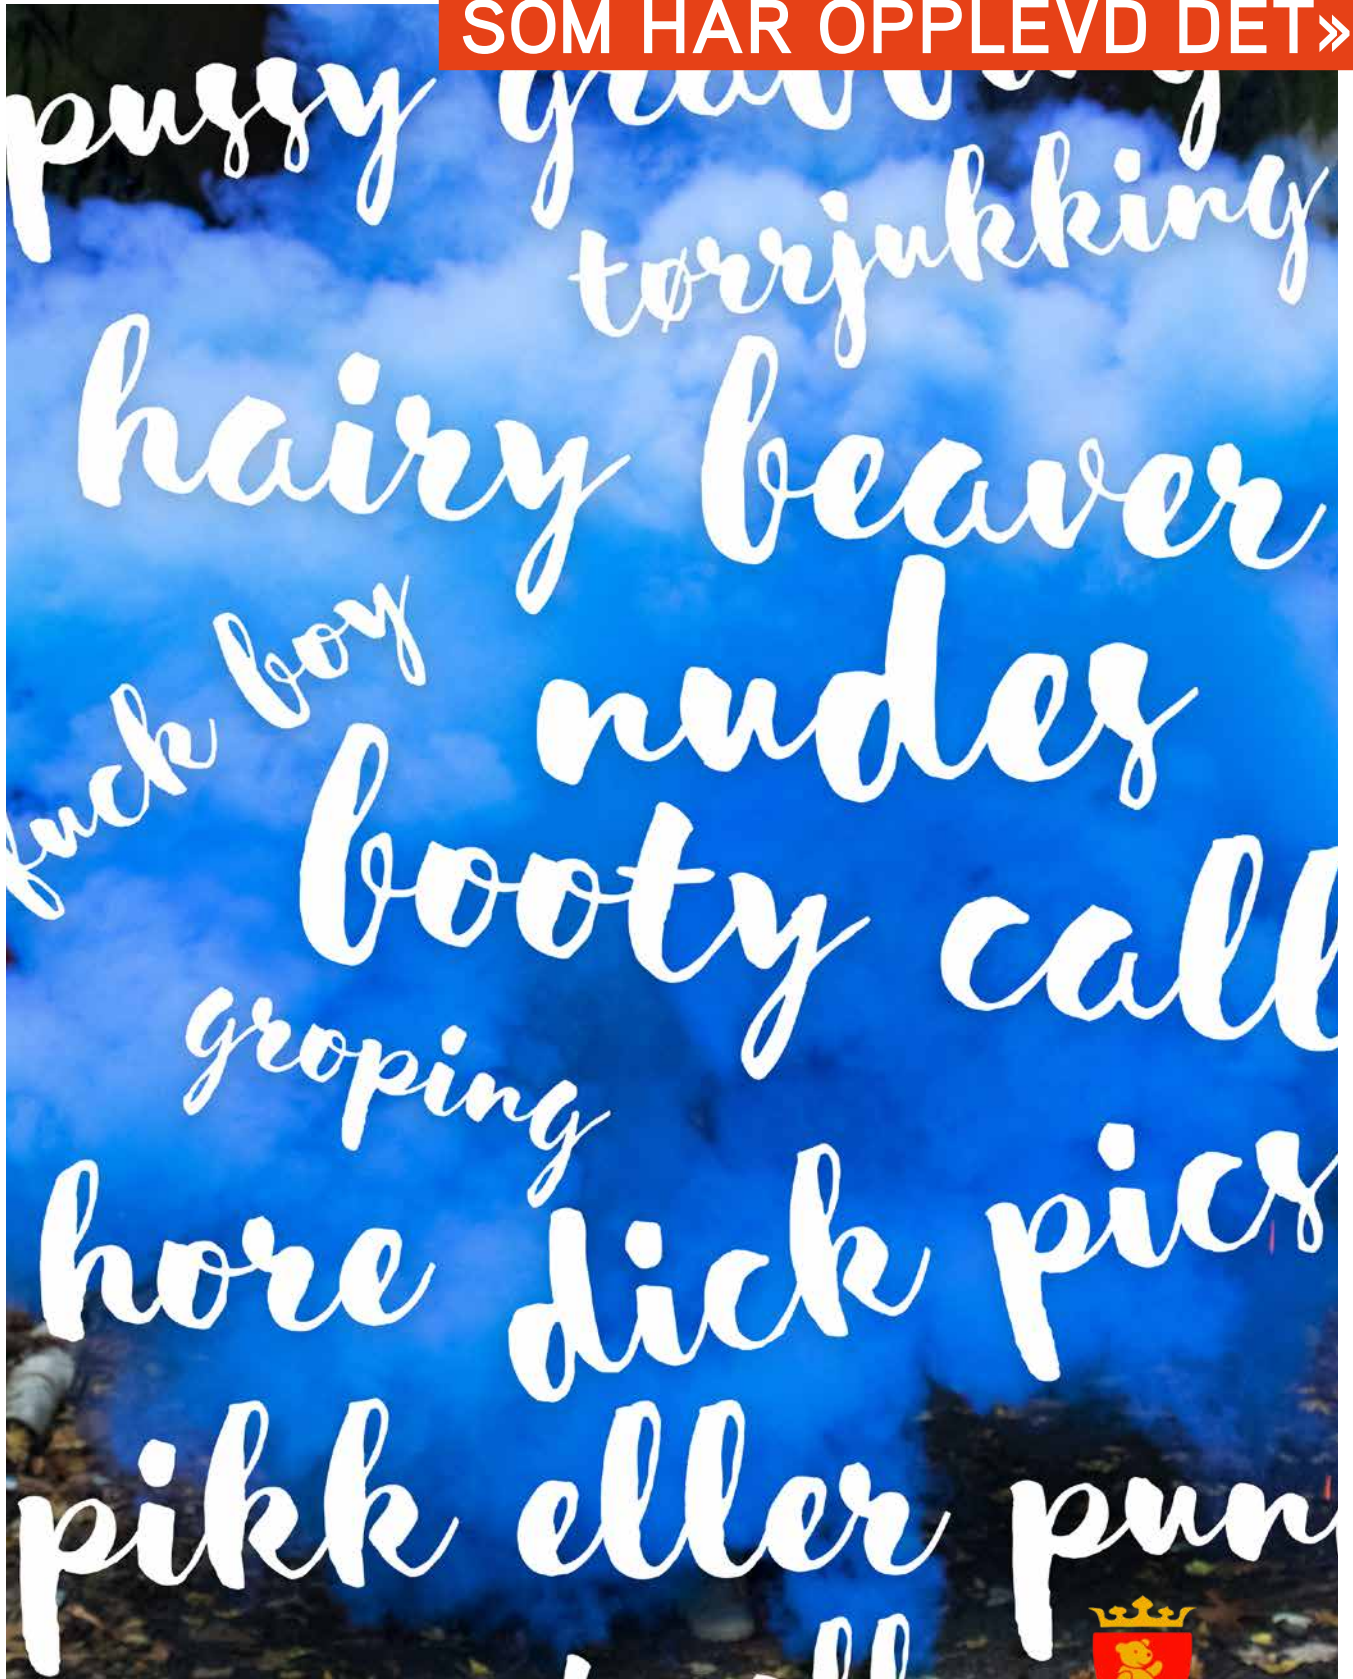 SOM HAR OPPLEVD DET»
pussy grabbing
tørrjukking
hairy beaver
fuck boy
nudes
booty call
groping
hore
dick pics
pikk eller